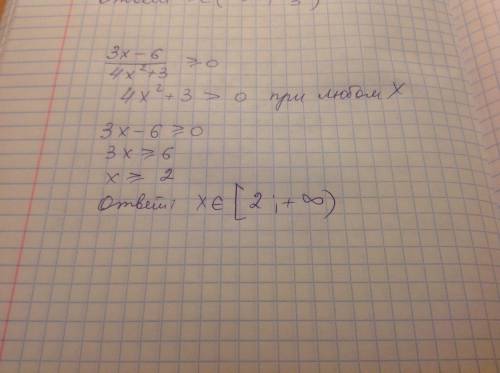 Ответ: x
3x-6
4x²+3 ⩾0
4x²+3 > 0 при любом X
3x-6 ⩾0
3x⩾6
x⩾ 2
Ответ: x∈[2;+∞)